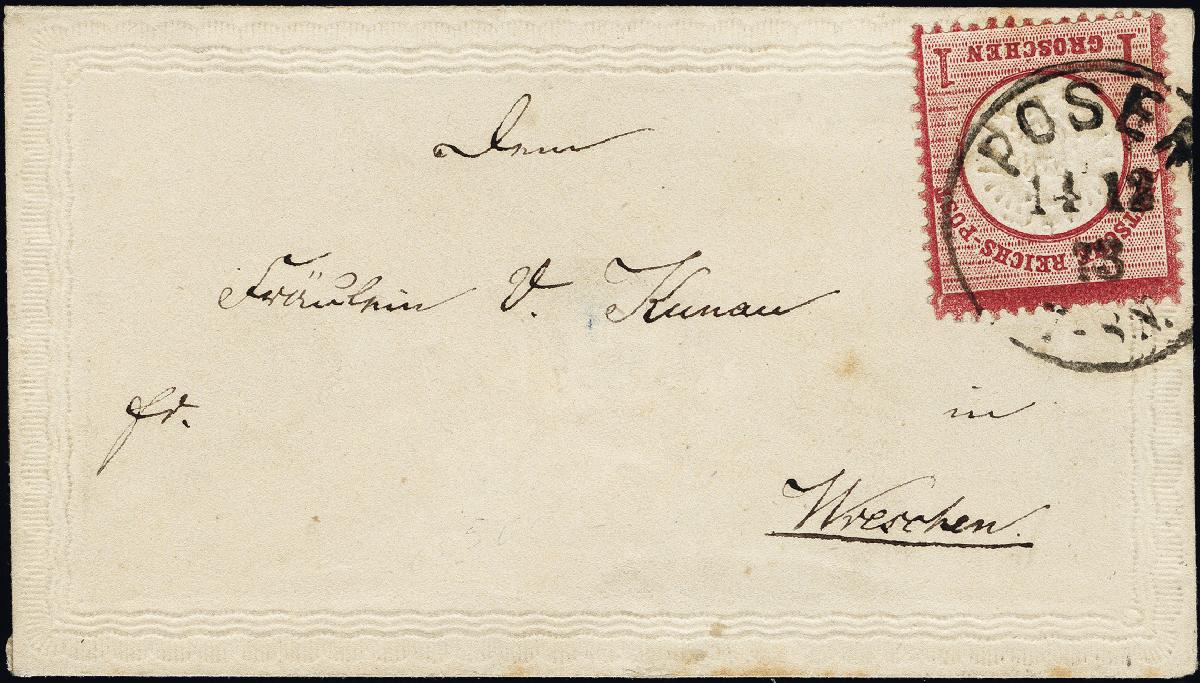 1 GROSCHEN 1
DEUTSCHE REICHS-POST
POSEN
14 12
73
Dem
Fräulein V. Kunau
fr.
in
Wreschen.